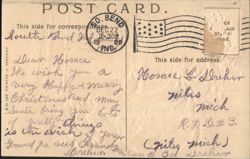 POST CARD.
This side for correspondence
SO. BEND
DEC 22
IND.
This side for address.
South Bend
Dear Horace
We wish you a
very Happy & merry
Christmas and may
Santa bring you lots
pretty things
is the wish of your
Horace L Dreher
Niles
Mich
R.F.D #3.
(Niles Mich)